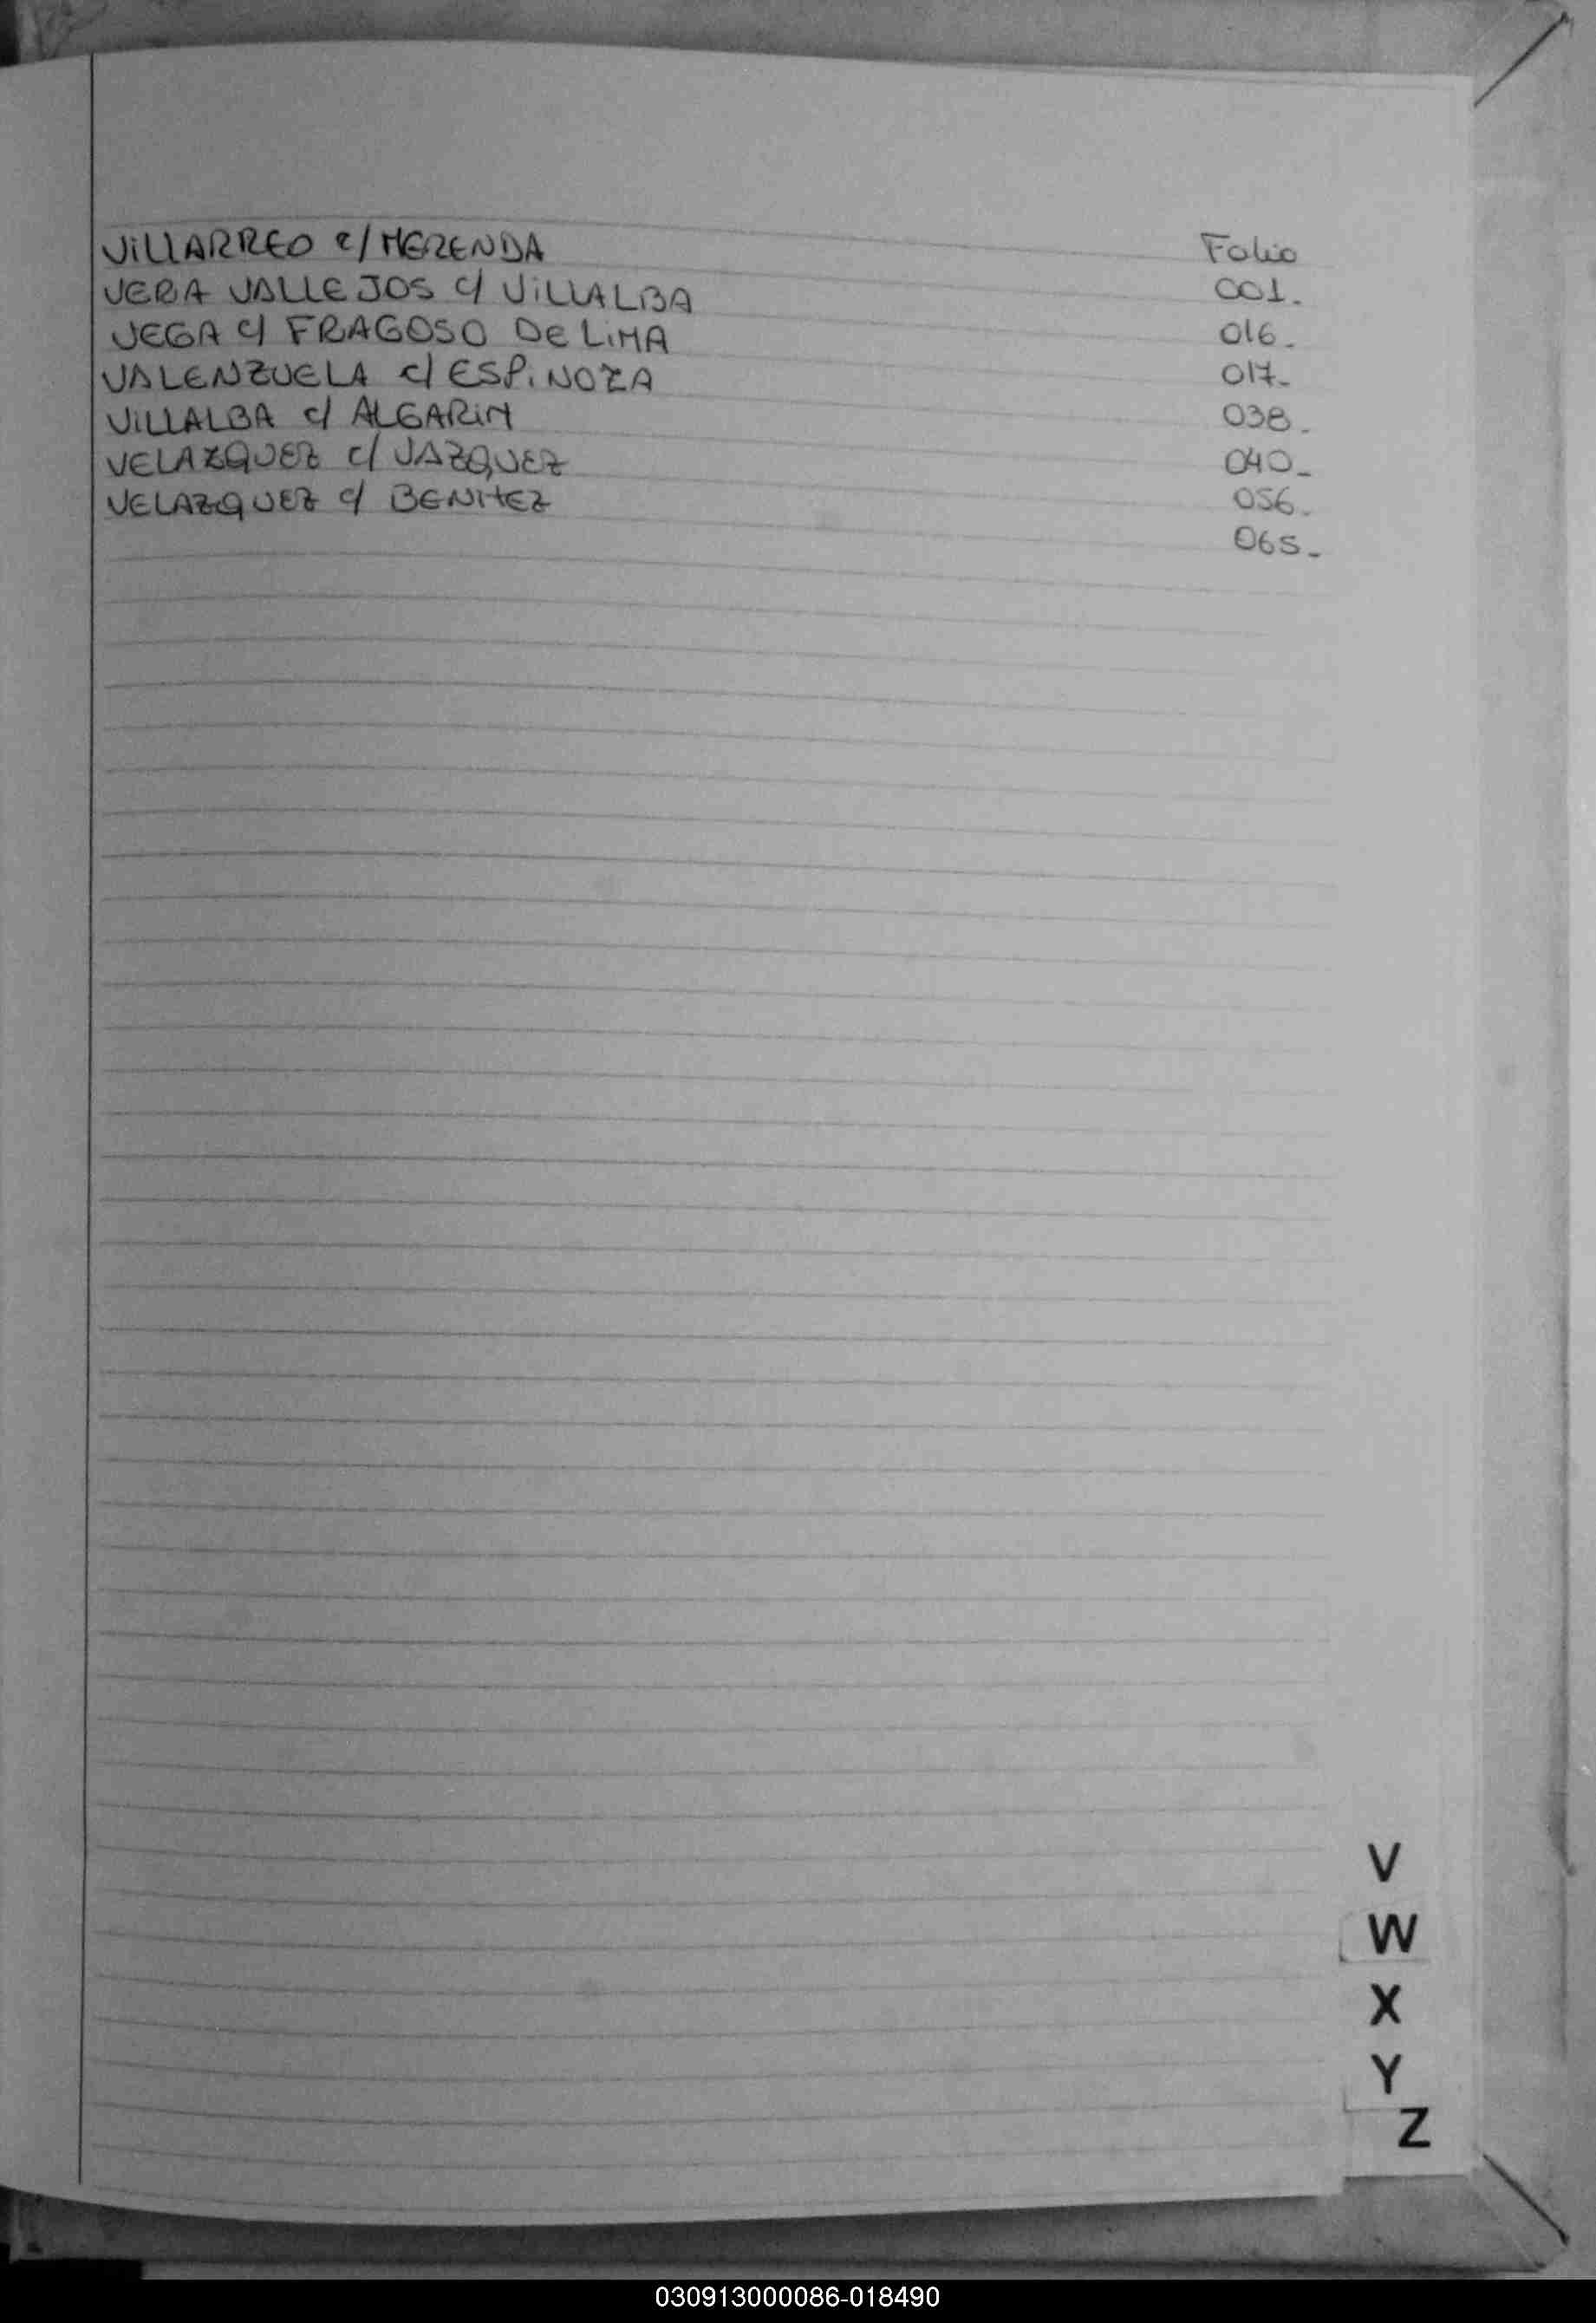 Folio
VILLARREO c/ MERENDA 001.
VERA VALLEJOS c/ VILLALBA 016.
VEGA c/ FRAGOSO DE LIMA 017.
VALENZUELA c/ ESPINOZA 038.
VILLALBA c/ ALGARIN 040.
VELAZQUEZ c/ VAZQUEZ 056.
VELAZQUEZ c/ BENITEZ 065.
V
W
X
Y
Z
030913000086-018490